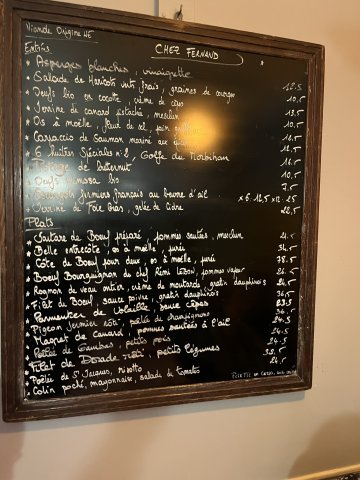 Viande Origine UE
CHEZ FERNAND
Entrées
* Asperges blanches, vinaigrette
* Salade de Haricots verts frais, graines de courges 12.5
* Oeufs bio en cocotte, crème de cèpes 10,5
* Terrine de canard pistache, mesclun 13,5
* Os à moelle, fleur de sel, pain 10,5
* Carpaccio de Saumon mariné aux 12,5
* 6 huîtres Spéciales n°2, Golfe du Morbihan 16,5
* de butternut 10,5
* Oeufs mimosa bio 7,5
* Escargots fermiers français au beurre d'ail x6. 12,5 x12. 25
* Terrine de Foie Gras, gelée de Cidre 22,5
Plats
* Tartare de Boeuf préparé, pommes sautées, mesclun
* Belle entrecôte, os à moelle, purée 34,5
* Côte de Boeuf pour deux, os à moelle, purée 78.5
* Boeuf Bourguignon du chef, pommes vapeur
* Rognon de veau entier, crème de moutarde, gratin dauphinois
* Filet de Boeuf, sauce poivre, gratin dauphinois 36,5
* Parmentier de Volaille, sauce cèpes
* Pigeon fermier rôti, poêlée de champignons
* Magret de Canard, pommes sautées à l'ail
* Poêlée de Gambas, petits pois
* Filet de Dorade rôti, petits légumes
* Poêlée de St Jacques, risotto
* Colin poché, mayonnaise, salade de tomates